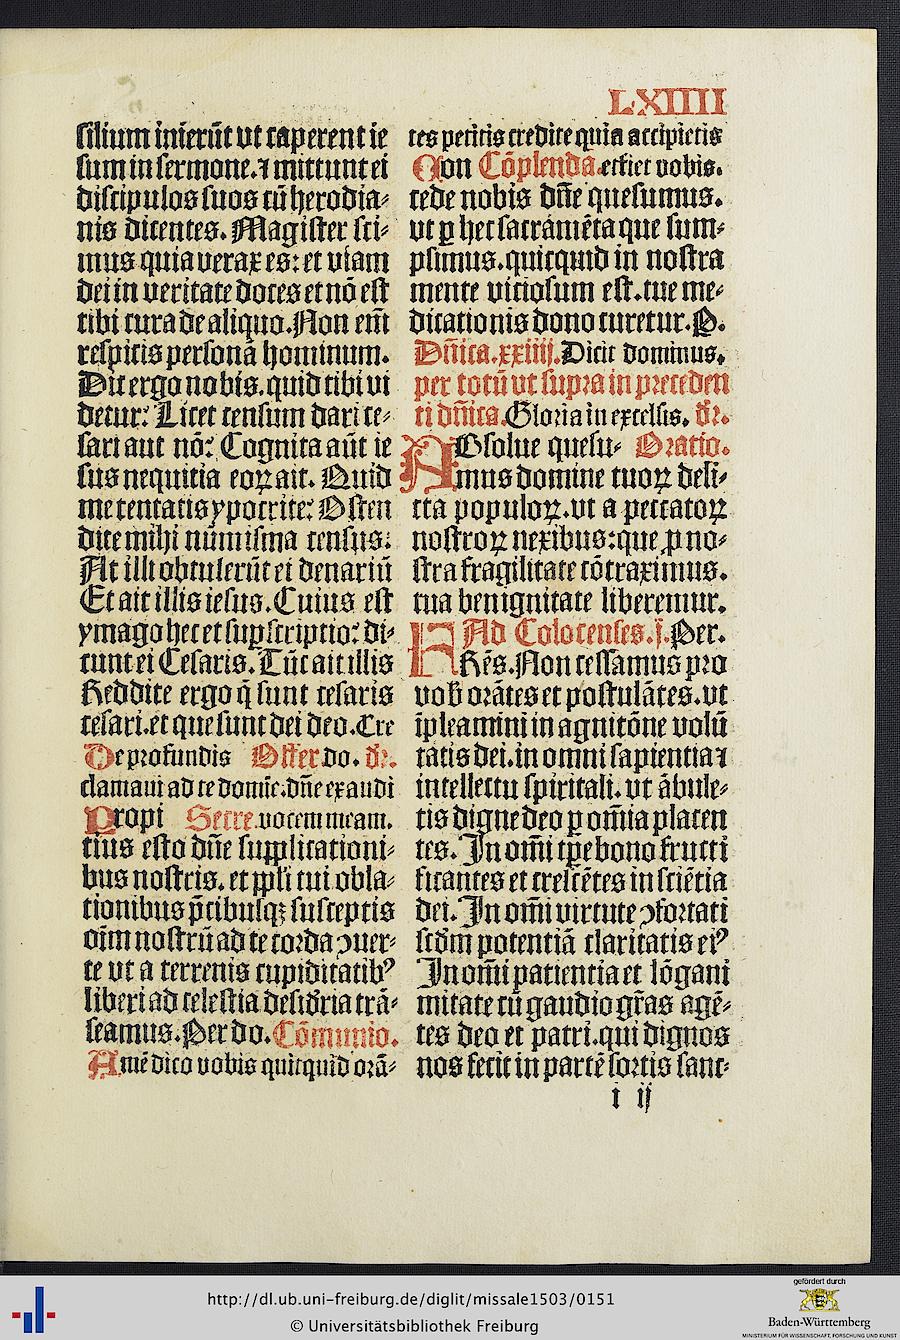 LXIIII
silium inierūt vt caperent ie
sum in sermone. ⁊ mittunt ei
discipulos suos cū herodia⸗
nis dicentes. Magister sci⸗
mus quia verax es: et viam
dei in veritate doces et nō est
tibi cura de aliquo. Non em̄
respicis personā hominum.
Dic ergo nobis. quid tibi vi
detur: Licet censum dari ce⸗
sari aut nō: Cognita aūt ie
sus nequitia eoꝝ ait. Quid
me tentatis ypocrite: Osten
dite mihi numisma census:
At illi obtulerūt ei denariū
Et ait illis iesus. Cuius est
ymago hec et sup̱scriptio: di⸗
cunt ei Cesaris. Tūc ait illis
Reddite ergo q̄ sunt cesaris
cesari. et que sunt dei deo. Cre
De profundis Offer do. ꝛc.
clamaui ad te domīe. dn̄e exaudi
Propi Secre. vocem meam.
cius esto dn̄e supplicationi⸗
bus nostris. et ppl̄i tui obla⸗
tionibus p̄cibusqꝫ susceptis
oīm nostrū ad te corda ꝯuer⸗
te vt a terrenis cupiditatibꝰ
liberi ad celestia desideria trā⸗
seamus. Per do. Cōmunio.
Amē dico vobis quicquid orā⸗
tes petitis credite quia accipietis
Con Cōplenda. et fiet vobis.
cede nobis dn̄e quesumus.
vt ꝑ hec sacramēta que sum⸗
psimus. quicquid in nostra
mente viciosum est. tue me⸗
dicationis dono curetur. P.
Dn̄ica. xxiiij. Dicit dominus.
per totū vt supra in preceden
ti dn̄ica. Gloria in excelsis. ꝛc.
ABsolue quesu⸗ Oratio.
mus domine tuoꝝ deli⸗
cta populoꝝ. vt a peccatoꝝ
nostroꝝ nexibus: que ꝓ no⸗
stra fragilitate cōtraximus.
tua benignitate liberemur.
Ad Colocenses. j. Per.
FRēs. Non cessamus pro
vob̄ orātes et postulātes. vt
īpleamini in agnitōne volū
tatis dei. in omni sapientia ⁊
intellectu spiritali. vt ābule⸗
tis digne deo ꝑ om̄ia placen
tes. In om̄i tp̄e bono fructi
ficantes et crescētes in sciētia
dei. In om̄i virtute ꝯfortati
scd̄m potentiā claritatis eiꝰ
In om̄i patientia et lōgani
mitate cū gaudio gr̄as agē⸗
tes deo et patri. qui dignos
nos fecit in partē sortis sanc⸗
i ij
http://dl.ub.uni-freiburg.de/diglit/missale1503/0151
© Universitätsbibliothek Freiburg
gefördert durch
Baden-Württemberg
MINISTERIUM FÜR WISSENSCHAFT, FORSCHUNG UND KUNST